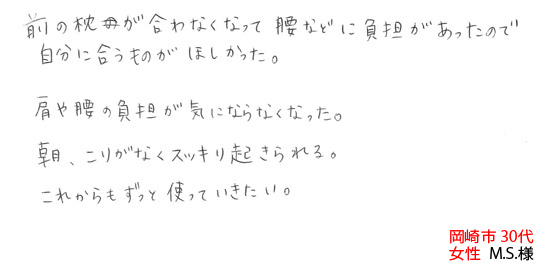 前の枕が合わなくなって 腰などに負担があったので
自分に合うものが ほしかった。
肩や腰の負担が気にならなくなった。
朝、こりがなくスッキリ起きられる。
これからもずっと使っていきたい。
岡崎市 30代
女性 M.S.様